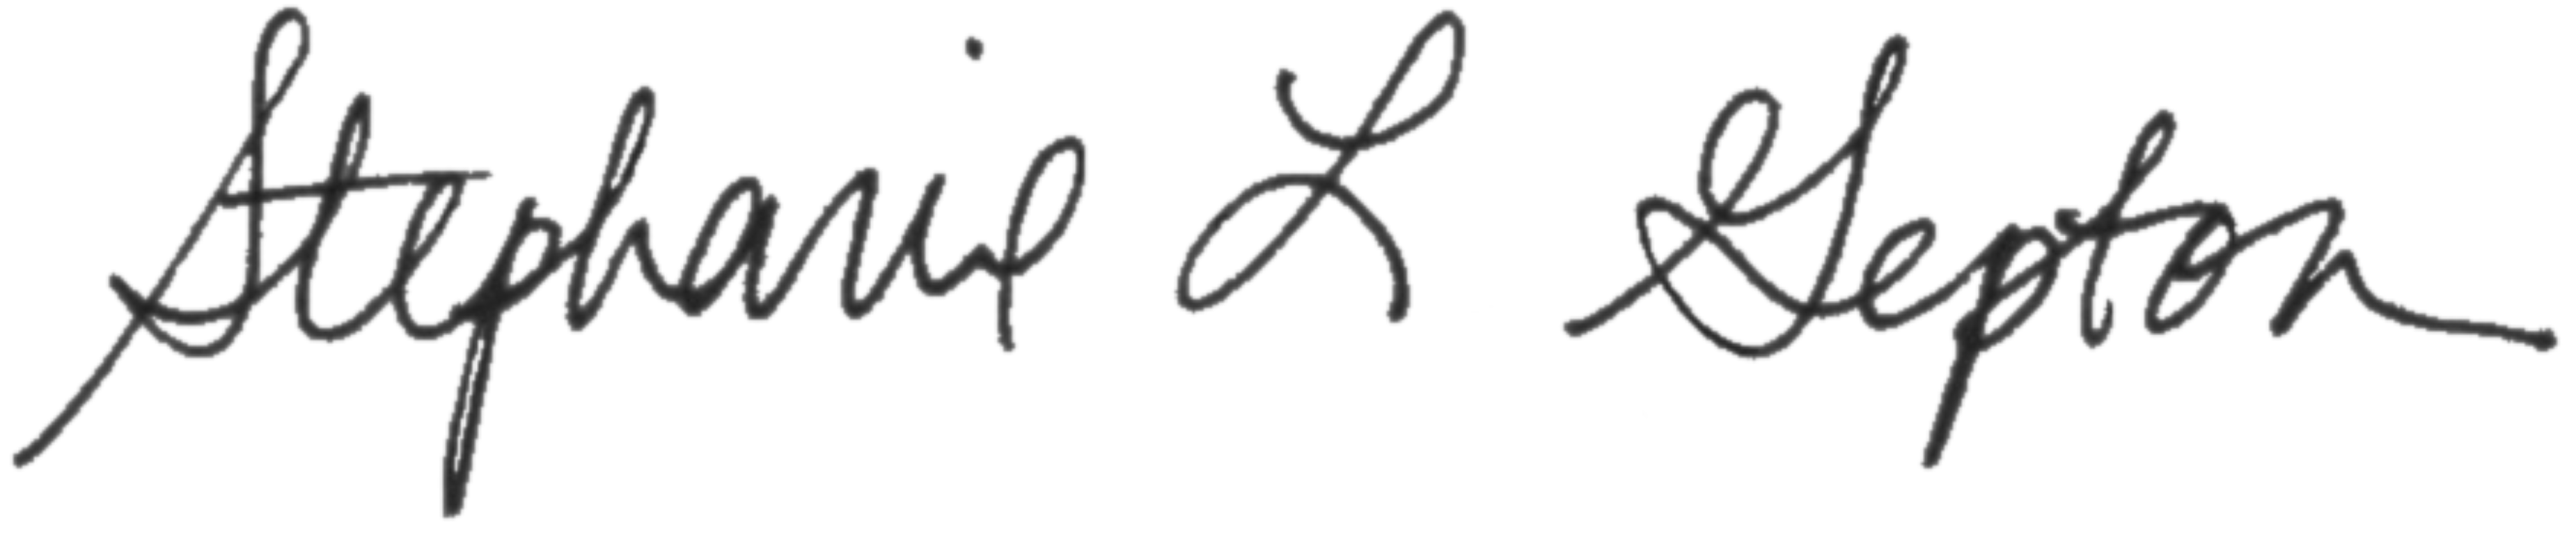 Stephanie L Gepton